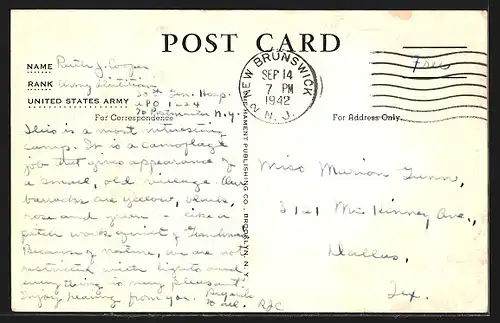 POST CARD
NAME Ruth J. Cooper
RANK Army Dietitian
30th Gen. Hosp.
UNITED STATES ARMY
APO 1224
% Postmaster N.Y.
For Correspondence
This is a most interesting
camp. It is a camouflage
job that gives appearance of
a small, old village. Our
barracks are yellow, black,
rose and green - like a
patch work quilt of Grandma's.
Because of nature, we are not
restricted with lights and
everything is very pleasant.
Enjoy hearing from you. Regards
to all. RJC
PARCHAMENT PUBLISHING CO., BROOKLYN, N. Y.
NEW BRUNSWICK
SEP 14
7 PM
1942
2 N. J.
Free
For Address Only
Miss Marion Gunn,
3121 Mc Kinney Ave.,
Dallas,
Tex.